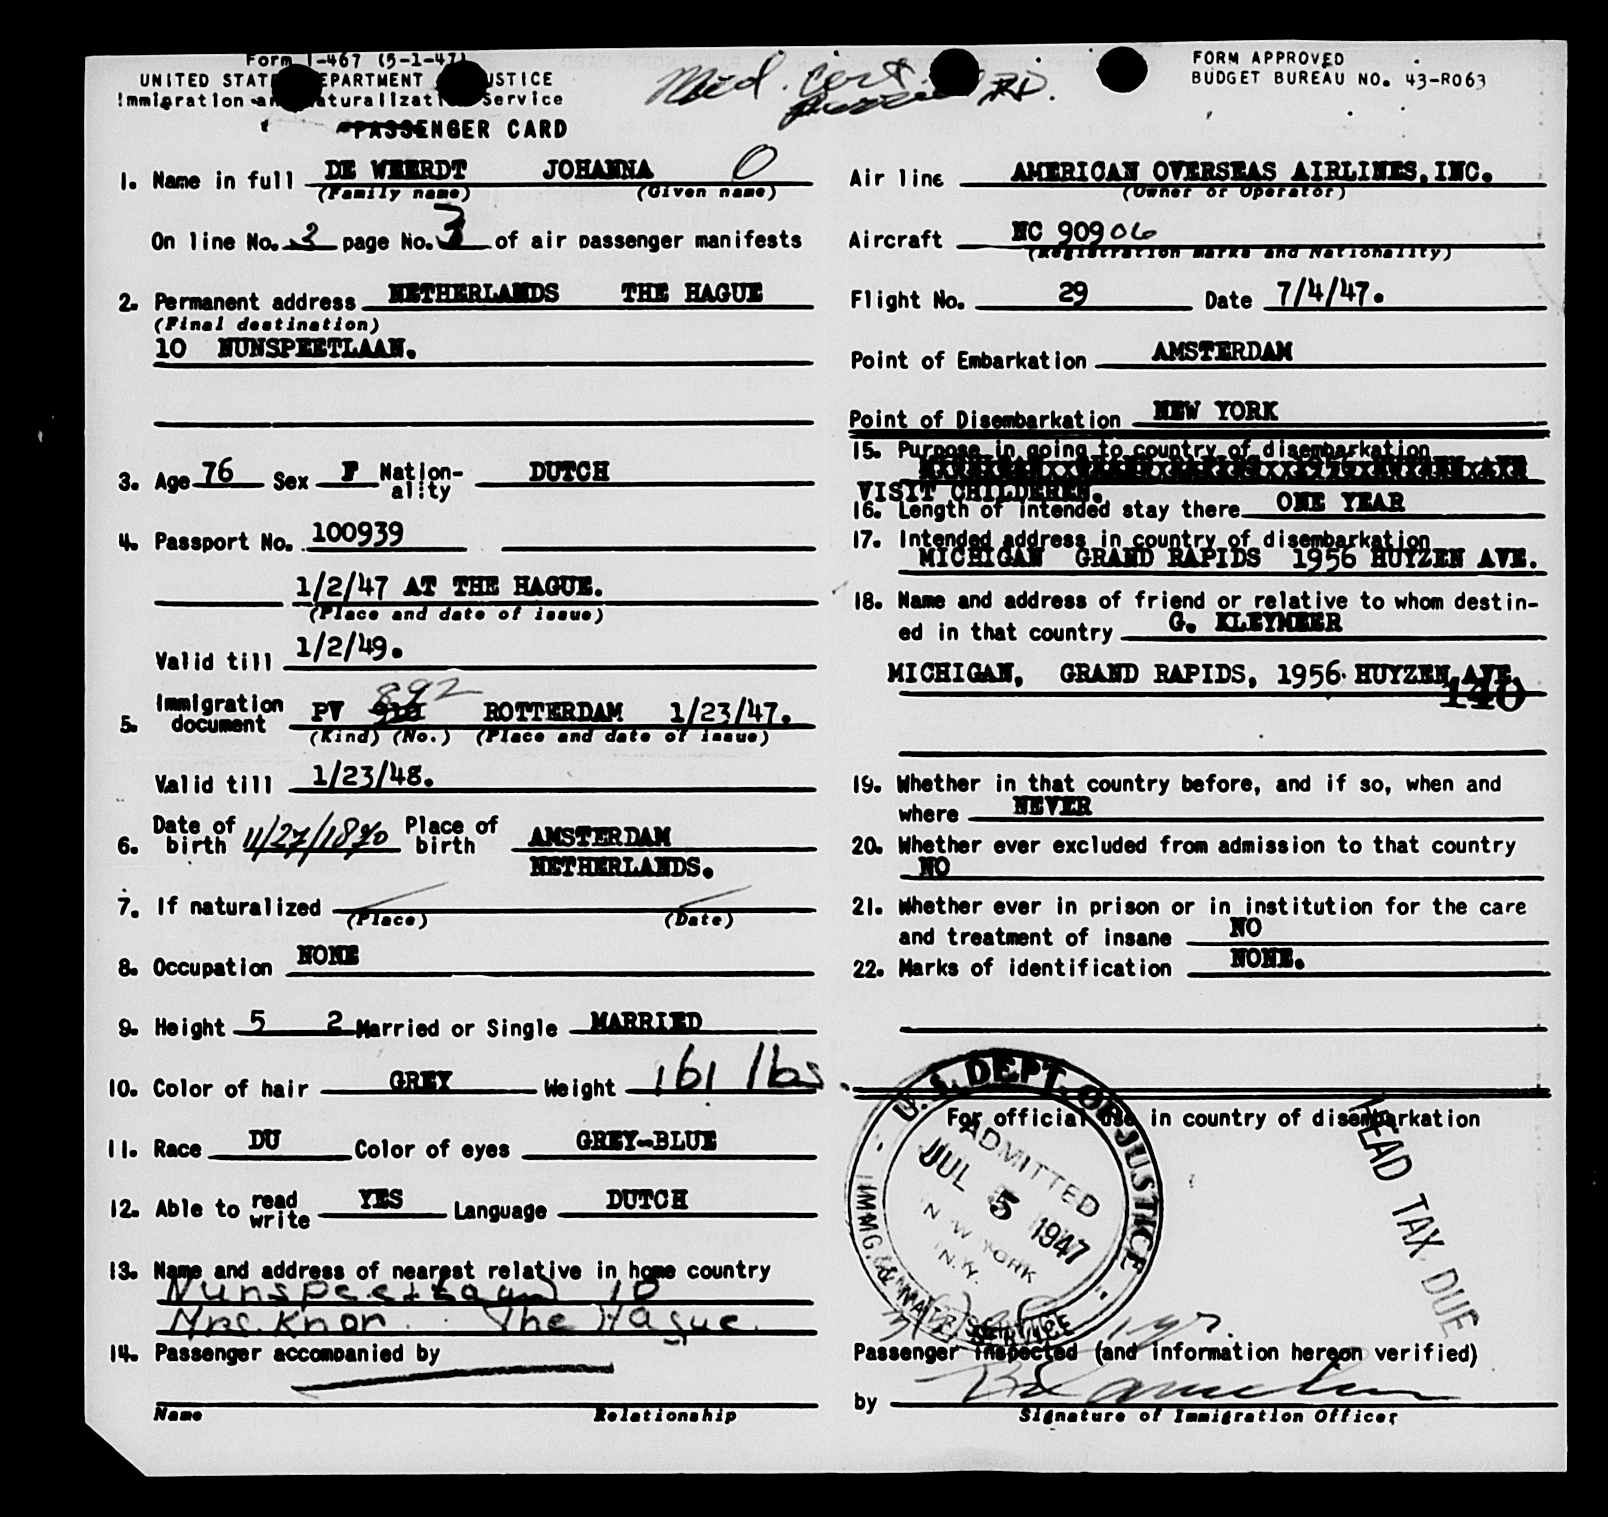 Form I-467 (5-1-47)
UNITED STATES DEPARTMENT OF JUSTICE
Immigration and Naturalization Service
PASSENGER CARD
Med. cert.
FORM APPROVED
BUDGET BUREAU NO. 43-R063
1. Name in full DE WEERDT JOHANNA O
(Family name) (Given name)
On line No. 3 page No. 3 of air passenger manifests
2. Permanent address NETHERLANDS THE HAGUE
(Final destination)
10 NUNSPEETLAAN.
3. Age 76 Sex F Nation-ality DUTCH
4. Passport No. 100939
1/2/47 AT THE HAGUE.
(Place and date of issue)
Valid till 1/2/49.
5. Immigration document PV 892 ROTTERDAM 1/23/47.
(Kind) (No.) (Place and date of issue)
Valid till 1/23/48.
6. Date of birth 11/27/1870 Place of birth AMSTERDAM
NETHERLANDS.
7. If naturalized
(Place) (Date)
8. Occupation NONE
9. Height 5 2 Married or Single MARRIED
10. Color of hair GREY Weight 161 lbs
11. Race DU Color of eyes GREY-BLUE
12. Able to read write YES Language DUTCH
13. Name and address of nearest relative in home country
Nunspeetlaan 10
Mrs. Knor. The Hague.
14. Passenger accompanied by
Name Relationship
Air line AMERICAN OVERSEAS AIRLINES, INC.
(Owner or Operator)
Aircraft NC 90906
(Registration marks and Nationality)
Flight No. 29 Date 7/4/47.
Point of Embarkation AMSTERDAM
Point of Disembarkation NEW YORK
15. Purpose in going to country of disembarkation
VISIT CHILDEREN.
16. Length of intended stay there ONE YEAR
17. Intended address in country of disembarkation
MICHIGAN GRAND RAPIDS 1956 HUYZEN AVE.
18. Name and address of friend or relative to whom destin-
ed in that country G. KLEYMEER
MICHIGAN, GRAND RAPIDS, 1956 HUYZEN AVE.
140
19. Whether in that country before, and if so, when and
where NEVER
20. Whether ever excluded from admission to that country
NO
21. Whether ever in prison or in institution for the care
and treatment of insane NO
22. Marks of identification NONE.
For official use in country of disembarkation
U. S. DEPT. OF JUSTICE
ADMITTED
JUL 5 1947
NEW YORK
N.Y.
IMMG. & NATZ. SERVICE
HEAD TAX DUE
Passenger inspected (and information hereon verified)
by
Signature of Immigration Officer